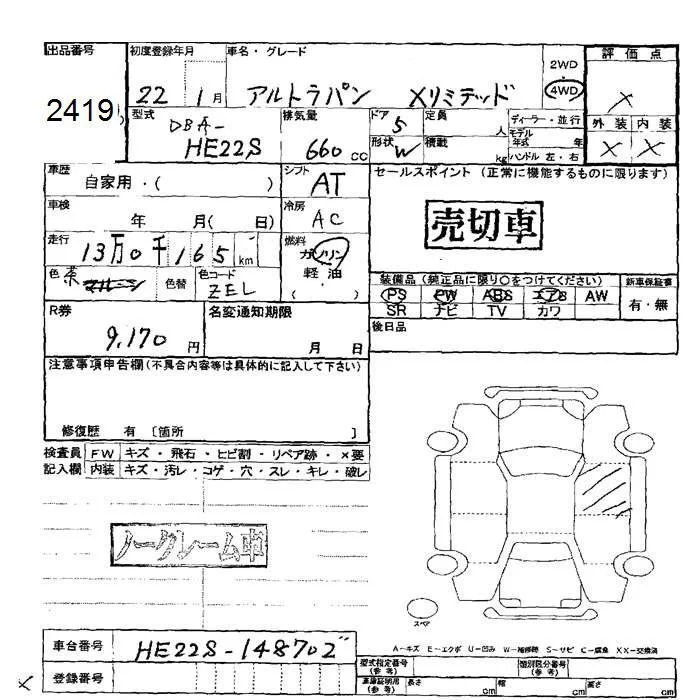 出品番号 初度登録年月 車名・グレード 2WD 評価点
2419 22 1月 アルトラパン Xリミテッド 4WD ×
型式 DBA-HE22S 排気量 660cc ドア 5 定員 人 ディーラー・並行 外装 内装
形状 W 積載 kg モデル年式 年 ハンドル 左・右 × ×
車歴 自家用・( ) シフト AT セールスポイント (正常に機能するものに限ります)
車検 年 月( 日) 冷房 AC 売切車
走行 13万0千165km 燃料 ガソリン
軽・油
( )
色 茶 色替 色コード ZEL
装備品 (純正品に限り○をつけてください) 新車保証書
PS PW ABS エアB AW 有・無
SR ナビ TV カワ
R券 9,170円 名変通知期限 月 日 後日品
注意事項申告欄(不具合内容等は具体的に記入して下さい)
修復歴 有 [箇所 ]
検査員 FW キズ・飛石・ヒビ割・リペア跡・×要
記入欄 内装 キズ・汚レ・コゲ・穴・スレ・キレ・破レ
ノークレーム車
スペア
A-キズ E-エクボ U-凹み W-補修跡 S-サビ C-腐食 XX-交換済
車台番号 HE22S-148702 型式指定番号(参考) 類別区分番号(参考)
× 登録番号 車庫証明用(参考) 長さ cm 幅 cm 高さ cm